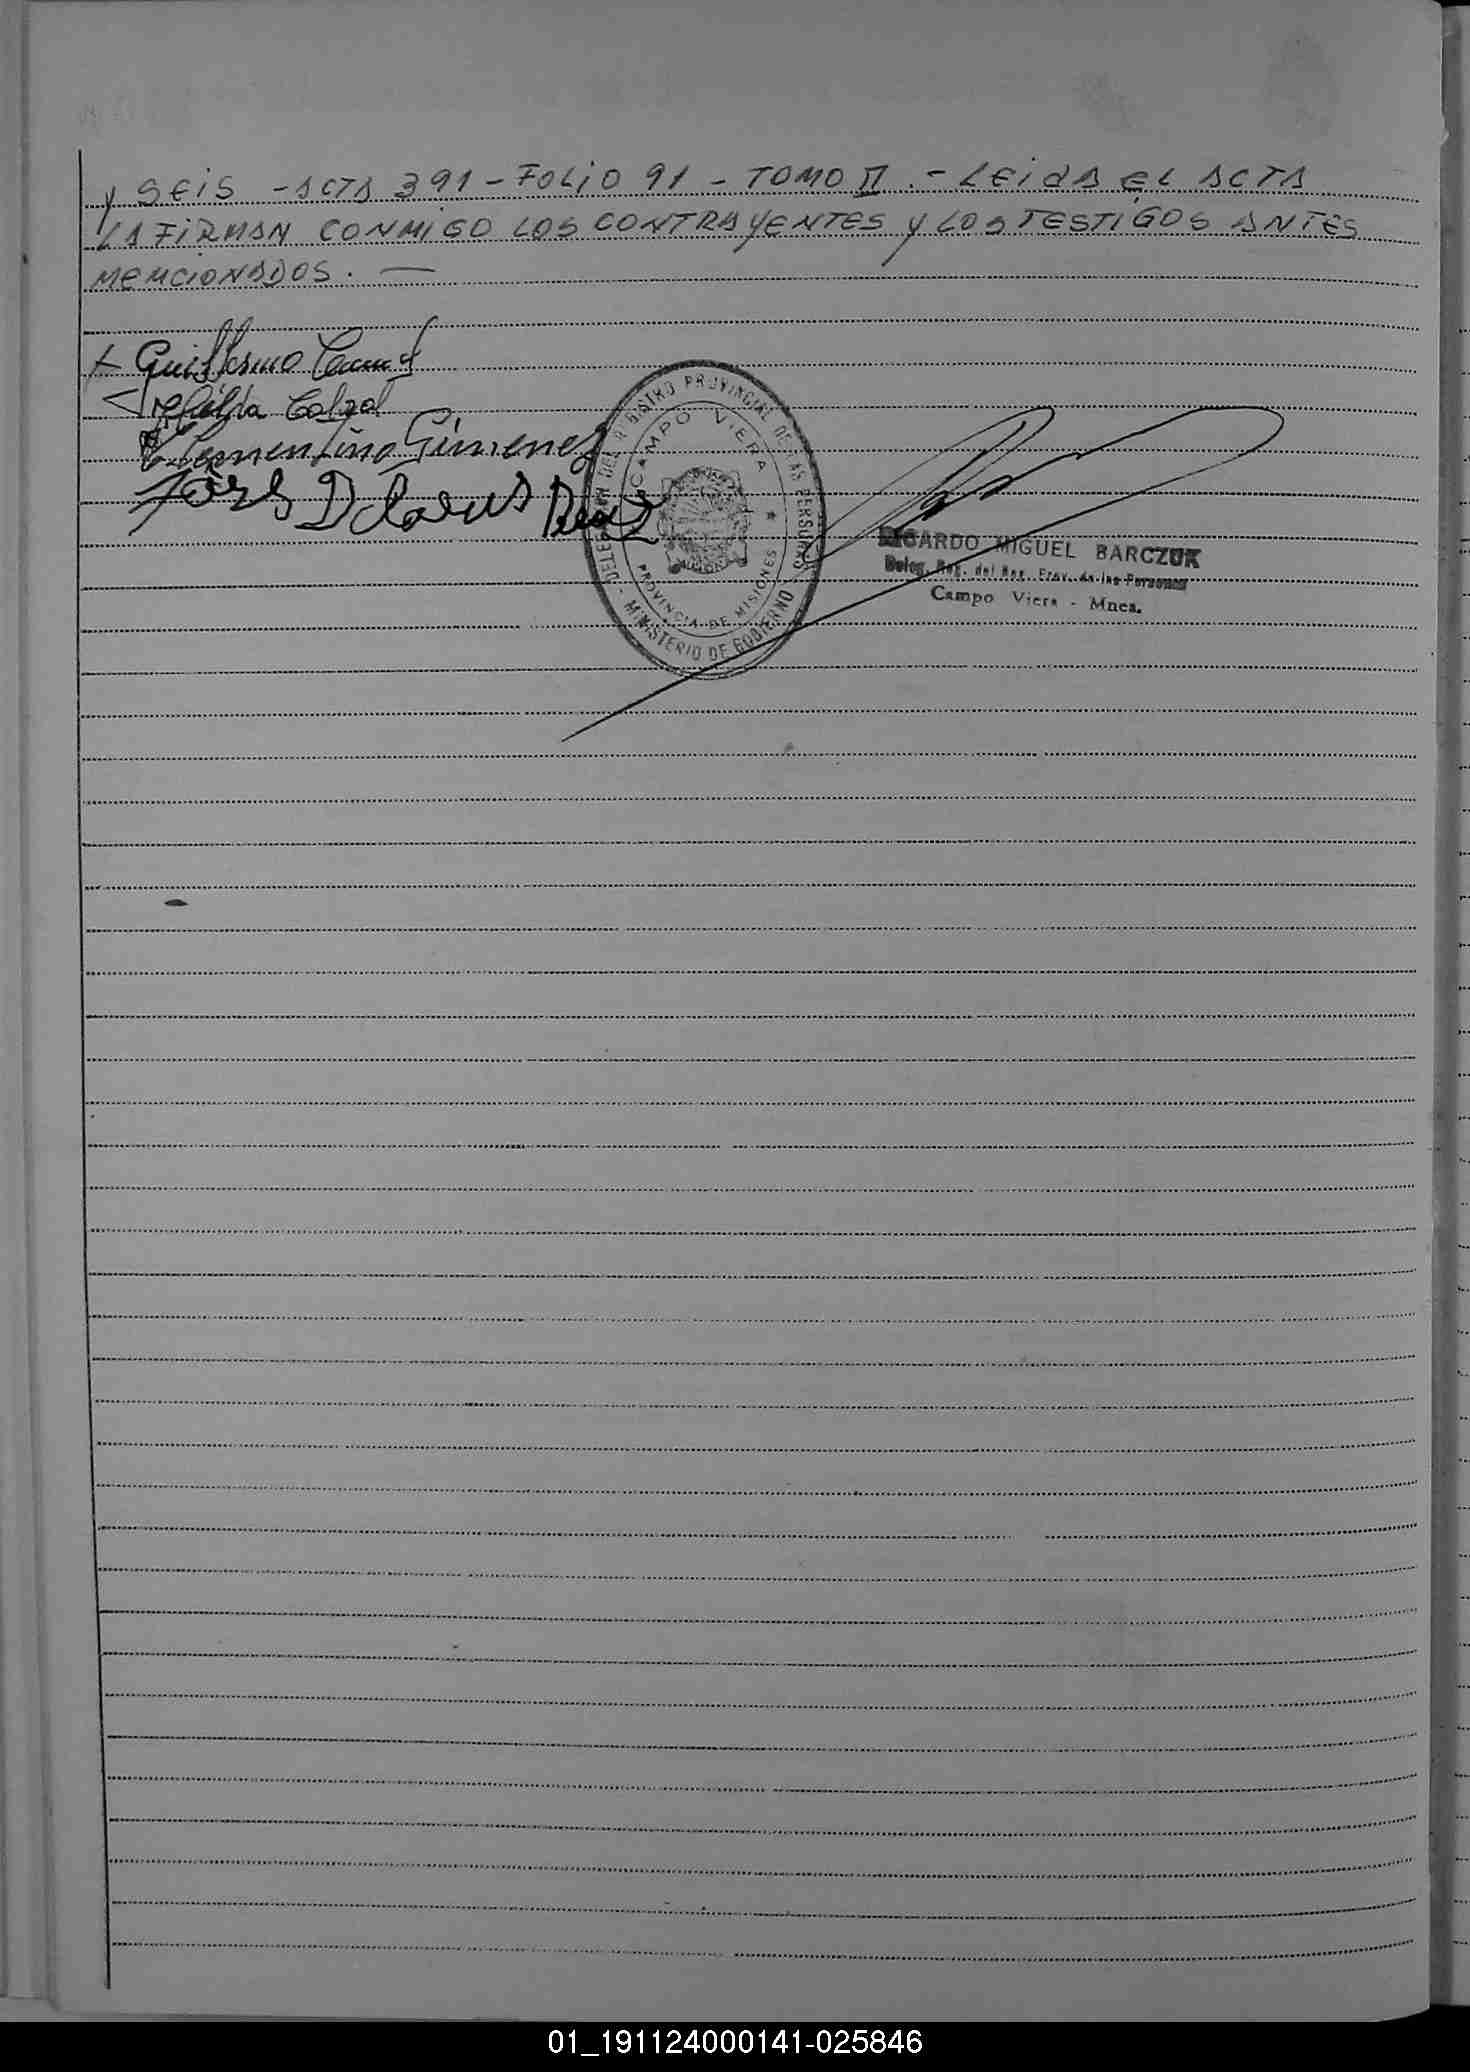 y SEIS - ACTA 391 - FOLIO 91 - TOMO II. - LEIDA EL ACTA
LA FIRMAN CONMIGO LOS CONTRAYENTES y LOS TESTIGOS ANTES
MENCIONADOS. —
Guillermo
Clementino Gimenez
DELEGACION DEL REGISTRO PROVINCIAL DE LAS PERSONAS
CAMPO VIERA
PROVINCIA DE MISIONES
- MINISTERIO DE GOBIERNO
RICARDO MIGUEL BARCZUK
Deleg. Reg. del Reg. Prov. de las Personas
Campo Viera - Mnes.
01_191124000141-025846